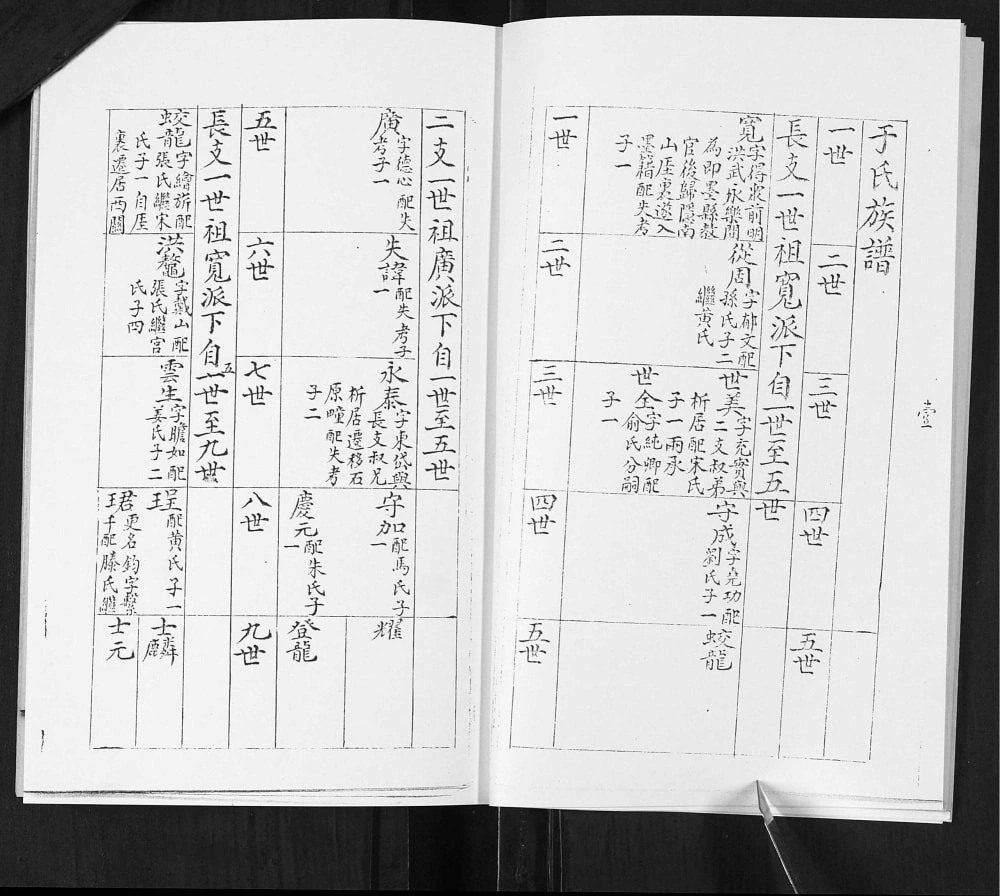 于氏族譜
壹
一世
二世
三世
四世
五世
長支一世祖寬派下自一世至五世
寬字得衆前明
洪武永樂間
為即墨縣教
官後歸隱南
山厓裏遂入
墨籍配失考
子一
從周字郁文配
孫氏子二
繼黄氏
世美字充實與
二支叔弟
析居配宋氏
子一兩承
世全字純卿配
俞氏分嗣
子一
守成字堯功配
劉氏子一
蛟龍
一世
二世
三世
四世
五世
二支一世祖廣派下自一世至五世
廣字德心配失
考子一
失諱配失考子
一
永泰字東岱與
長支叔兄
析居遷移石
原疃配失考
子二
守加配馬氏子
一
耀
慶元配朱氏子
一
登龍
五世
六世
七世
八世
九世
長支一世祖寬派下自五世至九世
蛟龍字繪旂配
張氏繼宋
氏子一自厓
裏遷居西關
洪鰲字戴山配
張氏繼宫
氏子四
雲生字瞻如配
姜氏子二
珵配黄氏子一
士麟
珺更名鈞字繫
千配滕氏繼
士元